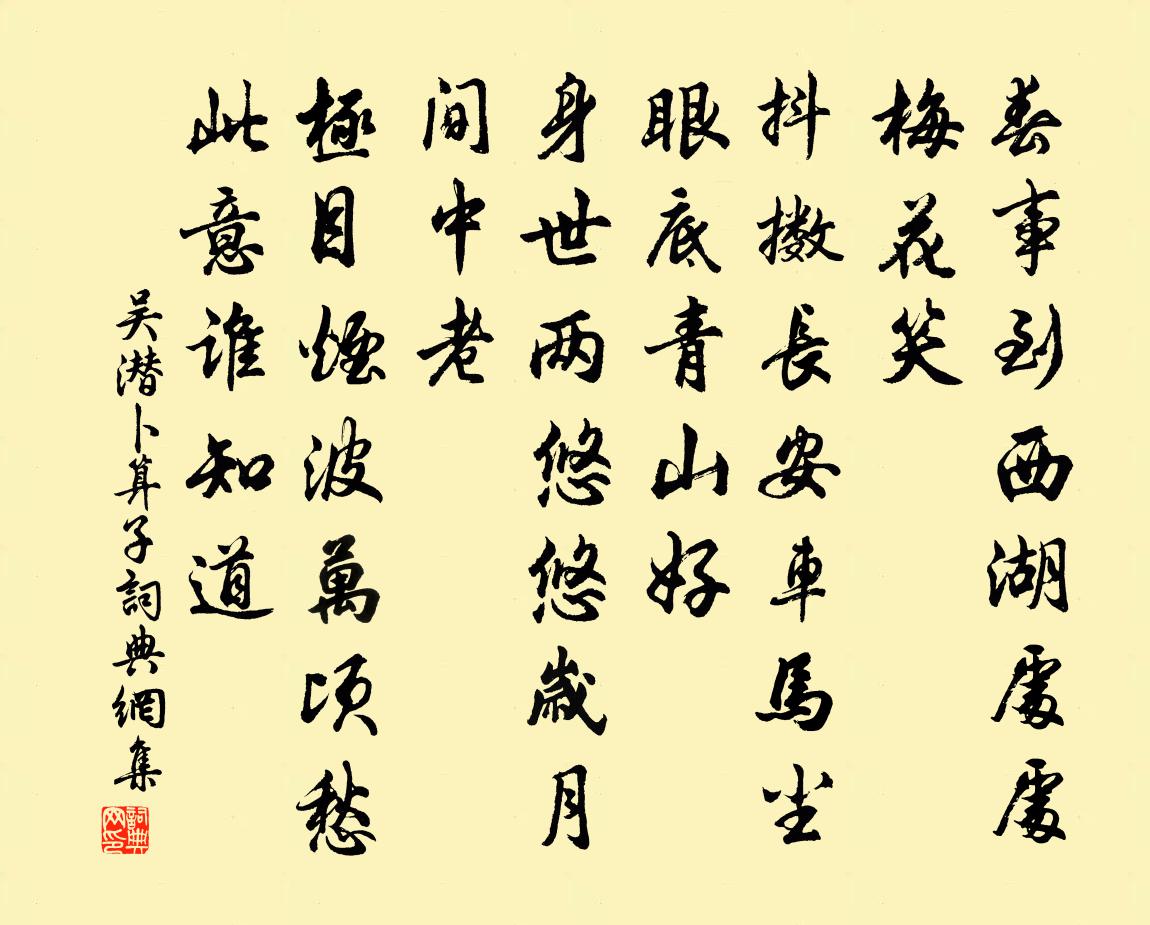 春事到西湖處處
梅花笑
抖擻長安車馬尘
眼底青山好
身世两悠悠歲月
间中老
極目煙波萬頃愁
此意誰知道
吴潜卜算子詞典網集
詞典网印